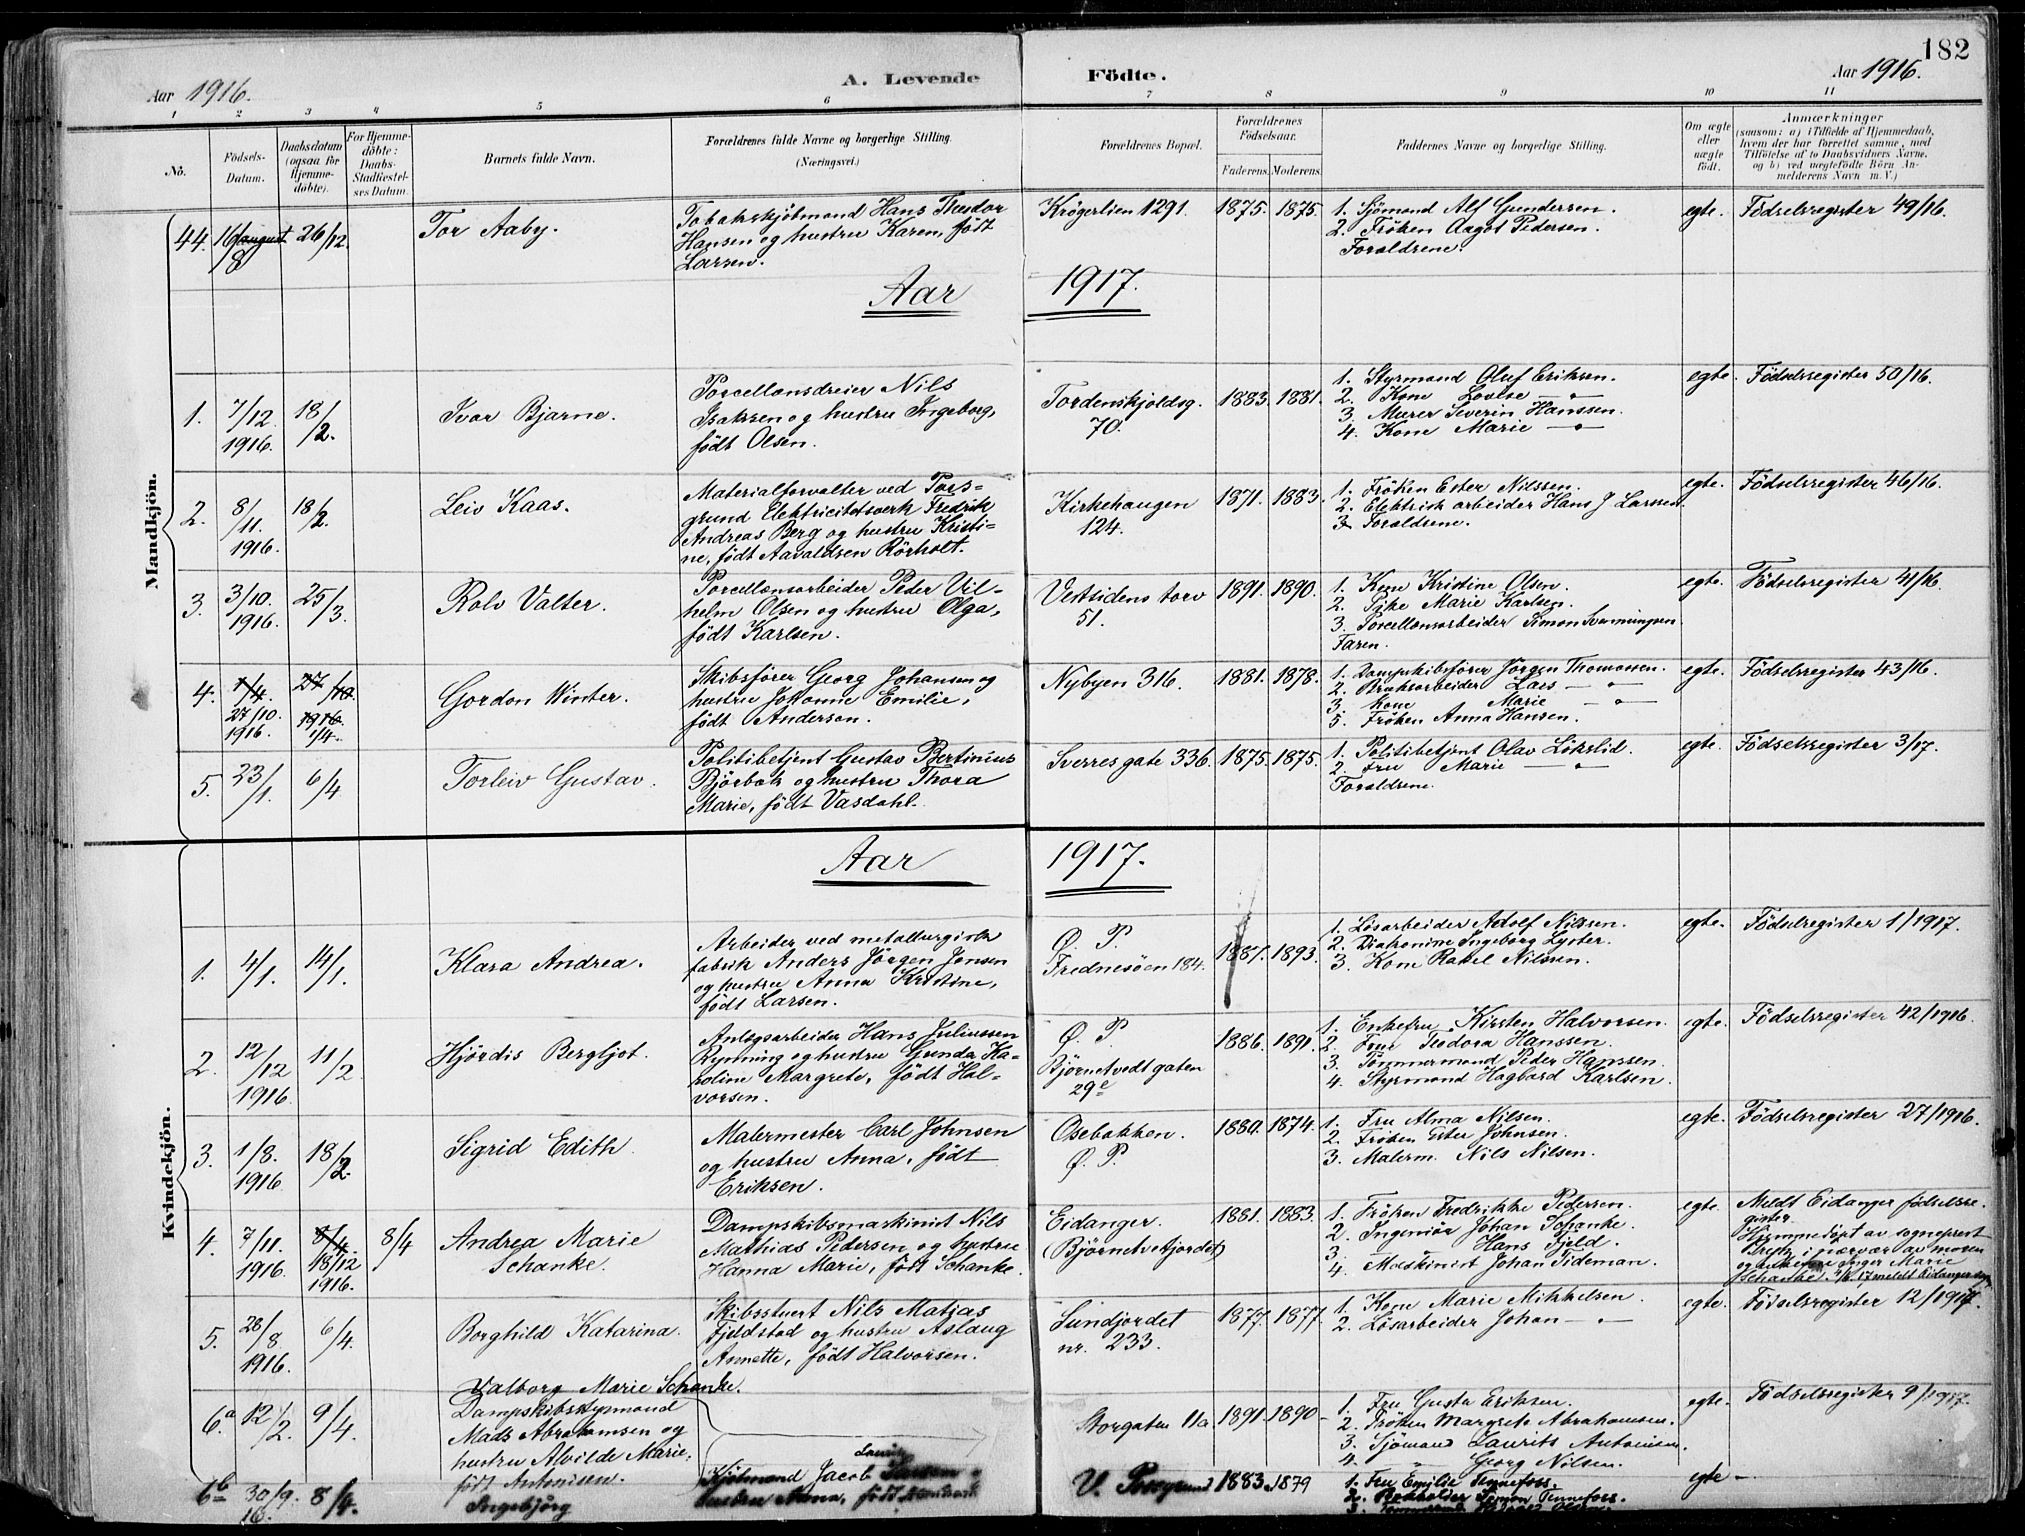 182
Aar 1916.
A. Levende Födte.
Aar 1916.
1 2 3 4 5 6 7 8 9 10 11
No.
Födsels-Datum.
Daabsdatum (ogsaa for Hjemme-döbte).
For Hjemme-döbte: Daabs-Stadfæstel-ses Datum.
Barnets fulde Navn.
Forældrenes fulde Navne og borgerlige Stilling. (Næringsvei.)
Forældrenes Bopæl.
Forældrenes Födselsaar.
Faderens. Moderens.
Faddernes Navne og borgerlige Stilling.
Om ægte eller uægte födt.
Anmærkninger
(saasom: a) i Tilfælde af Hjemmedaab, hvem der har forrettet samme, med Tilföielse af to Daabsvidners Navne, og b) ved uægtefödte Börn An-melderens Navn m. V.)
Mandkjön.
44. 16/8 august 26/12. Tor Aaby.
Tobakskjøbmand Hans Theodor
Hansen og hustru Karen, født
Larsen.
Krögerlien 1291. 1875. 1875.
1. Sjömand Alf Gundersen.
2. Fröken Aagot Pedersen.
Forældrene.
egte. Födselsregister 49/16.
Aar 1917.
1. 7/12 1916. 18/2. Ivar Bjarne.
Porcellænsdreier Nils
Isaksen og hustru Ingeborg,
født Olsen.
Tordenskjoldsg. 70. 1883. 1881.
1. Styrmand Oluf Eriksen.
2. Kone Lovise — " —
3. Murer Severin Hanssen.
4. Kone Marie — " —
egte. Födselsregister 50/16.
2. 8/11. 1916. 18/2. Leiv Kaas.
Materialforvalter ved Pors-
grund Elektricitetsverk Fredrik
Andreas Berg og hustru Kristi-
ne, født Aavaldsen Rörholt.
Kirkehaugen 124. 1871. 1883.
1. Fröken Ester Nilssen.
2. Elektrisk arbeider Hans J Larssen.
3. Forældrene.
egte. Födselsregister 46/16.
3. 3/10. 1916. 25/3. Rolv Valter.
Porcellænsarbeider Peder Vil-
helm Olsen og hustru Olga,
født Karlsen.
Vestsidens torv 51. 1891. 1890.
1. Kone Kristine Olsen.
2. Pike Marie Karlsen.
3. Porcellænsarbeider Simon Svenningsen
Faren.
egte. Födselsregister 41/16.
4. 1/4. 27/10. 1916. 27/10. 1916. 1/4. Gordon Winter.
Skibsfører Georg Johansen og
hustru Johanne Emilie,
født Anderson.
Nybyen 316. 1881. 1878.
1. Dampskibsfører Jörgen Thomassen.
2. Bruksarbeider Lars — " —
3. Kone Marie — " —
5. Fröken Anna Hansen.
egte. Födselsregister 43/16.
5. 23/1. 6/4. Torleiv Gustav.
Politibetjent Gustav Bertinius
Bjørbæk og hustru Thora
Marie, født Vasdahl.
Sverres gate 336. 1875. 1875.
1. Politibetjent Olav Lökslid.
2. Fru Marie — " —
Forældrene.
egte. Födselsregister 3/17.
Kvindekjön.
Aar 1917.
1. 4/1. 14/1. Klara Andrea.
Arbeider ved metallurgisk
fabrik Anders Jörgen Jensen
og hustru Anna Kristine,
født Larsen.
Ø. P. Frednesöen 184. 1887. 1893.
1. Løsarbeider Adolf Nilssen.
2. Diakonisse Ingeborg Lyster.
3. Kone Rakel Nilssen.
egte. Födselregister 1/1917.
2. 12/12 1916. 11/2. Hjördis Bergljot.
Anlægsarbeider Hans Juliussen
Rynning og hustru Gunda Ka-
roline Margrete, født Hal-
vorsen.
Ø. P. Björntvedtgaten 29e 1886. 1891.
1. Enkefru Kirsten Halvorsen.
2. Frue Teodora Hanssen.
3. Tømmermand Peder Hanssen.
4. Styrmand Hagbard Karlsen.
egte. Födselsregister 42/1916.
3. 1/8. 1916. 18/2. Sigrid Edith.
Malermester Carl Johnsen
og hustru Anna, født
Eriksen.
Osebakken. Ø. P. 1880. 1874.
1. Fru Alma Nilsen.
2. Fröken Ester Johnsen.
3. Malerm. Nils Nilsen.
egte. Födselsregister 27/1916.
4. 7/11. 1916. 8/4 18/12 1916. 8/4 Andrea Marie Schanke.
Dampskibsmaskinist Nils
Mathias Pedersen og hustru
Hanna Marie, født Schanke.
Eidanger. (Björntvetjordet) 1881. 1883.
1. Fröken Fredrikke Pedersen.
2. Ingeniör Johan Schanke.
3. Hans Fjeld.
4. Maskinist Johan Tideman.
egte. Meldt Eidanger fødselsre-
gister.
Hjemmedøpt av sogneprest
i nærvær av moren
og Inger Marie
Schanke. meldt Eidanger
5. 28/8 1916. 6/4. Borghild Katarina.
Skibsstuert Nils Matias
Fjeldstad og hustru Aslaug
Annette, født Halvorsen.
Sundjordet nr. 233. 1877. 1877.
1. Kone Marie Mikkelsen.
2. Løsarbeider Johan — " —
egte. Födselsregister 12/1917.
6a 12/2. 9/4. Valborg Marie Schanke.
Dampskibsstyrmand
Mads Abrahamsen og
hustru Alvilde Marie,
født Antonisen.
Storgaten 11a 1891. 1890.
1. Fru Gusta Eriksen.
2. Fröken Margrete Abrahamsen.
3. Sjömand Laurits Antonisen.
4. " Georg Nilsen.
egte. Födselsregister 9/1917.
6b 30/9. 16. 8/4. Ingebjörg
Kjøbmand Jacob Larsen
hustru Anna, født
V. Porsgrund 1883. 1879
1. Fru Emilie Tennefoss.
2. Bokholder Simon Tennefoss.
3.
egte —